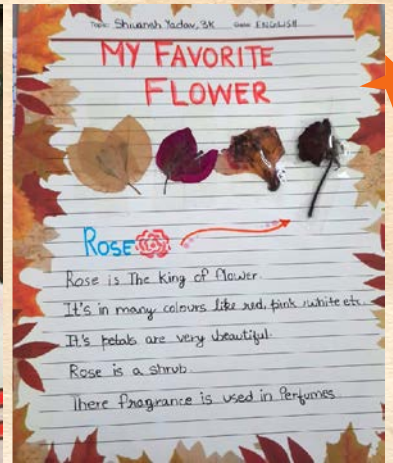 Topic Shivansh Yadav, 3K Date ENGLISH
MY FAVORITE
FLOWER
ROSE
Rose is The king of flower.
It's in many colours like red, pink, white etc.
It's petals are very beautiful.
Rose is a shrub.
There fragrance is used in Perfumes.